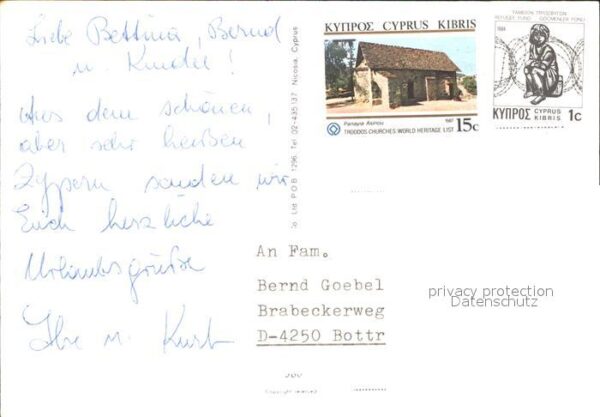 Liebe Bettina, Bernd
u. Kinder!
Aus dem schönen,
aber sehr heißen
Zypern senden wir
Euch herzliche
Urlaubsgrüße
Ilse u. Kurt
Ltd P.O.B. 1296, Tel. 02-435137 Nicosia, Cyprus
ΚΥΠΡΟΣ CYPRUS KIBRIS
Panayia Asinou 1987
TROODOS CHURCHES WORLD HERITAGE LIST 15c
ΤΑΜΕΙΟΝ ΠΡΟΣΦΥΓΩΝ
REFUGEE FUND GÖÇMENLER FONU
1984
ΚΥΠΡΟΣ CYPRUS KIBRIS 1c
An Fam.
Bernd Goebel
Brabeckerweg
D-4250 Bottr
privacy protection
Datenschutz
Copyright reserved